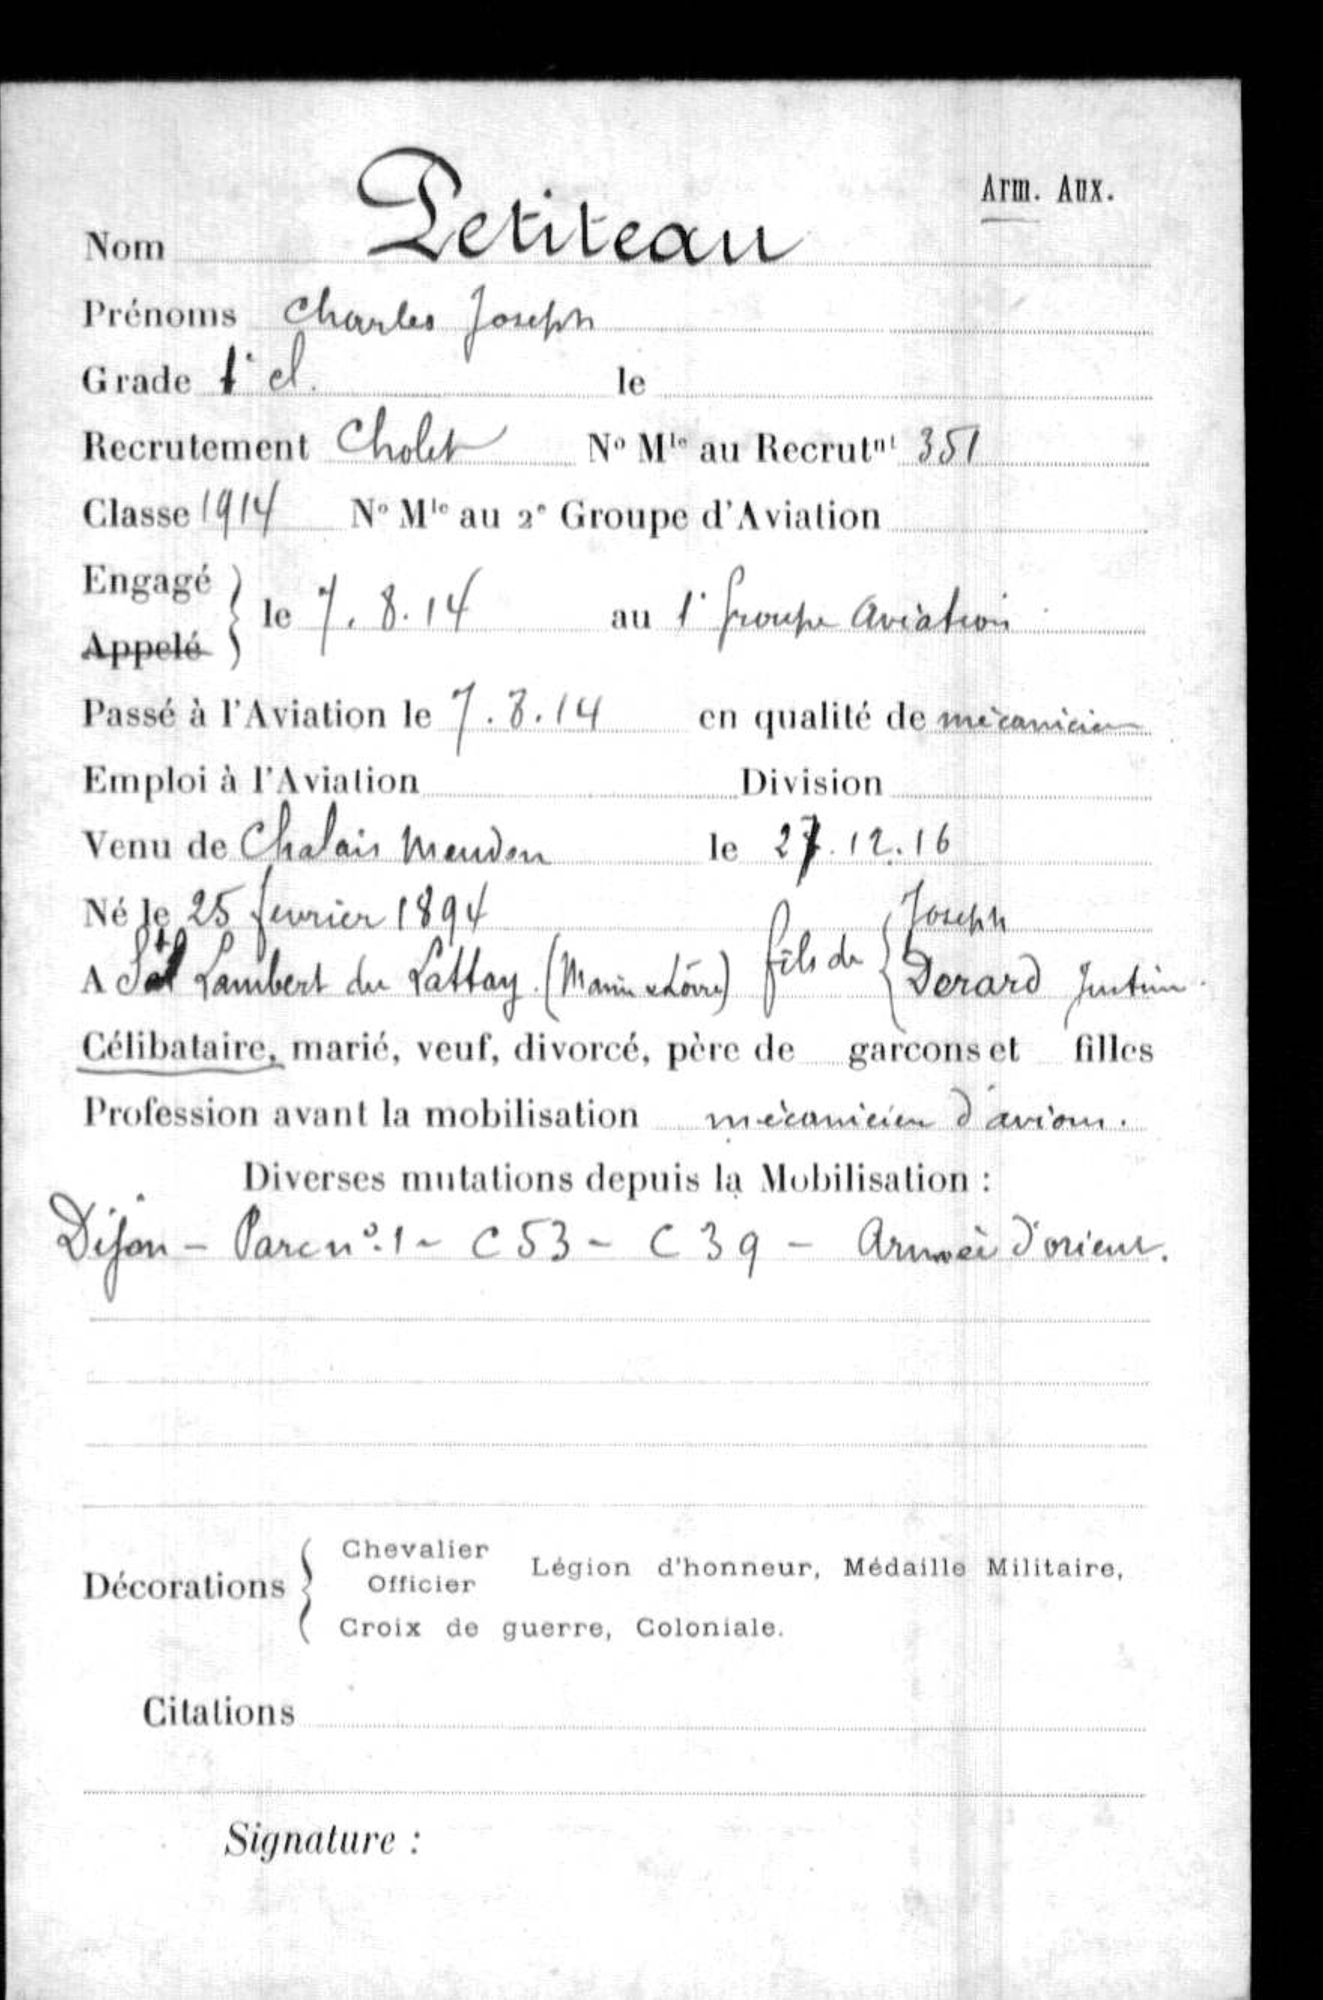 Arm. Aux.
Nom Petiteau
Prénoms Charles Joseph
Grade 1e cl. le
Recrutement Cholet No Mle au Recrutnt 351
Classe 1914 No Mle au 2e Groupe d'Aviation
Engagé
Appelé
le 7.8.14 au 1e Groupe Aviation
Passé à l'Aviation le 7.8.14 en qualité de mécanicien
Emploi à l'Aviation Division
Venu de Chalais Meudon le 27.12.16
Né le 25 fevrier 1894 fils de Joseph
A St Lambert du Lattay (Maine & Loire) Derard Justine
Célibataire, marié, veuf, divorcé, père de garçons et filles
Profession avant la mobilisation mécanicien d'avions.
Diverses mutations depuis la Mobilisation :
Dijon - Parc no. 1 - C 53 - C 39 - Armée d'orient.
Chevalier
Décorations Officier Légion d'honneur, Médaille Militaire,
Croix de guerre, Coloniale.
Citations
Signature :